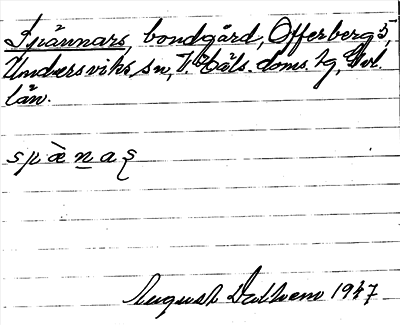 Spännars, bondgård, Offerberg 5,
Undersviks sn, V. Häls. doms. hg, Gvl.
län.
spæ̀n̲aʂ
August Dalhem 1947